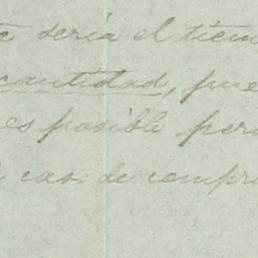 sería el tiem
cantidad, pue
es posible per
caso de compr